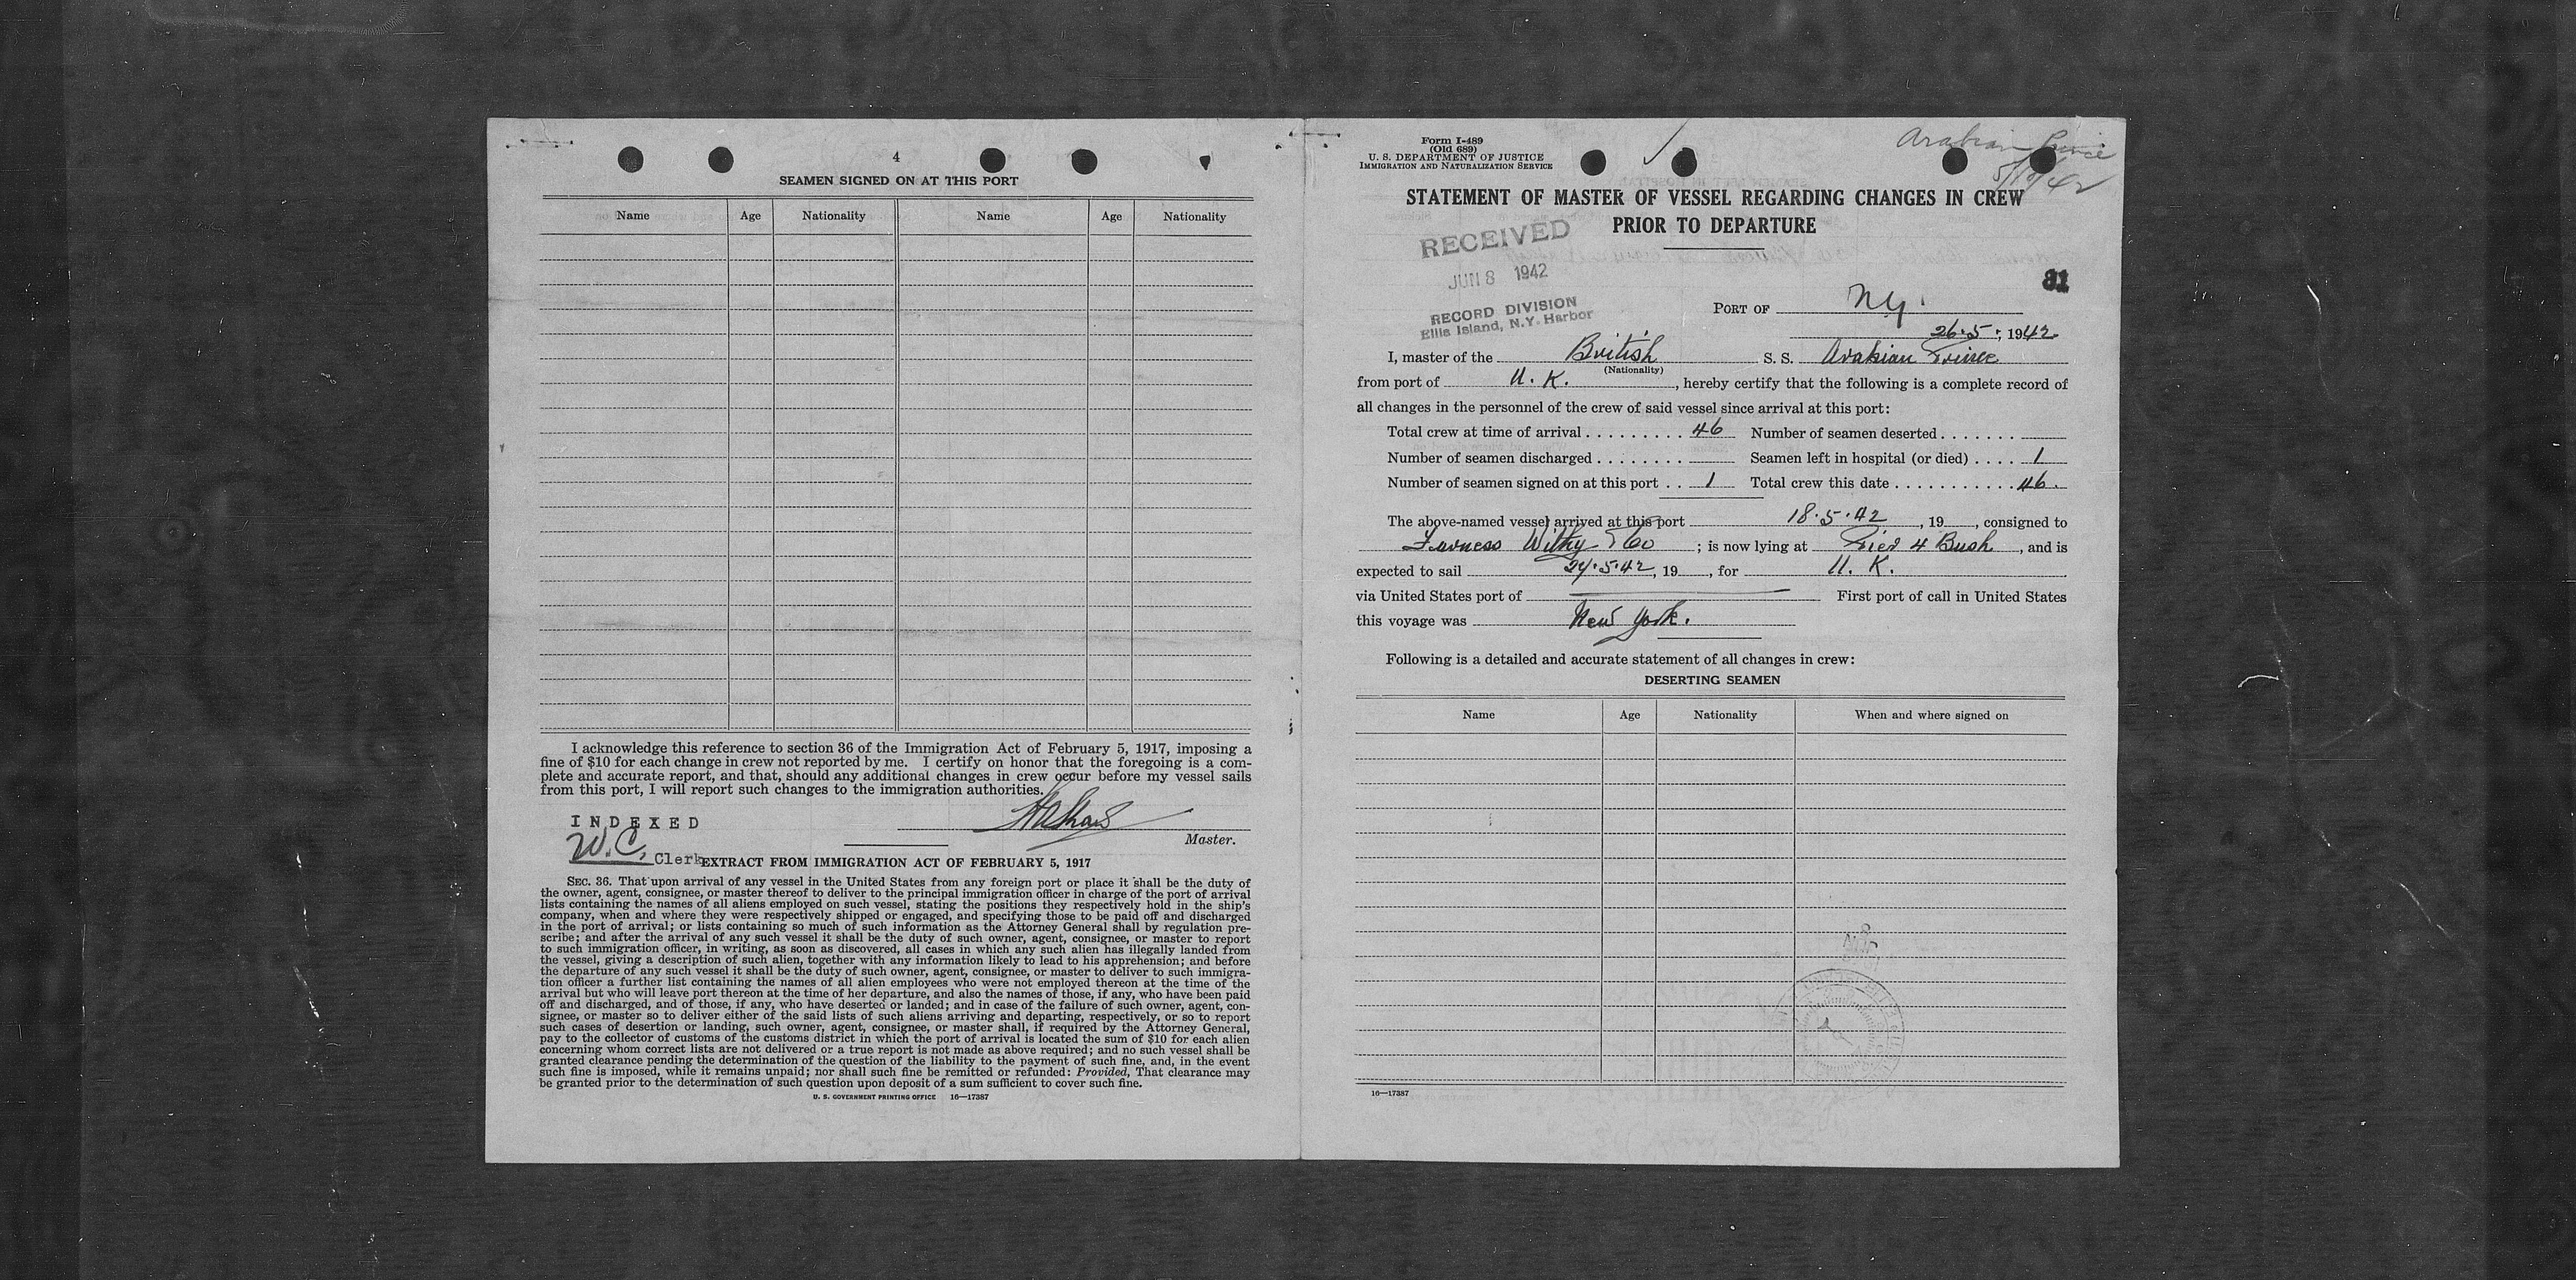 4
SEAMEN SIGNED ON AT THIS PORT
Name Age Nationality Name Age Nationality
I acknowledge this reference to section 36 of the Immigration Act of February 5, 1917, imposing a
fine of $10 for each change in crew not reported by me. I certify on honor that the foregoing is a com-
plete and accurate report, and that, should any additional changes in crew occur before my vessel sails
from this port, I will report such changes to the immigration authorities.
INDEXED
Master.
W.C. Clerk
EXTRACT FROM IMMIGRATION ACT OF FEBRUARY 5, 1917
SEC. 36. That upon arrival of any vessel in the United States from any foreign port or place it shall be the duty of
the owner, agent, consignee, or master thereof to deliver to the principal immigration officer in charge of the port of arrival
lists containing the names of all aliens employed on such vessel, stating the positions they respectively hold in the ship's
company, when and where they were respectively shipped or engaged, and specifying those to be paid off and discharged
in the port of arrival; or lists containing so much of such information as the Attorney General shall by regulation pre-
scribe; and after the arrival of any such vessel it shall be the duty of such owner, agent, consignee, or master to report
to such immigration officer, in writing, as soon as discovered, all cases in which any such alien has illegally landed from
the vessel, giving a description of such alien, together with any information likely to lead to his apprehension; and before
the departure of any such vessel it shall be the duty of such owner, agent, consignee, or master to deliver to such immigra-
tion officer a further list containing the names of all alien employees who were not employed thereon at the time of the
arrival but who will leave port thereon at the time of her departure, and also the names of those, if any, who have been paid
off and discharged, and of those, if any, who have deserted or landed; and in case of the failure of such owner, agent, con-
signee, or master so to deliver either of the said lists of such aliens arriving and departing, respectively, or so to report
such cases of desertion or landing, such owner, agent, consignee, or master shall, if required by the Attorney General,
pay to the collector of customs of the customs district in which the port of arrival is located the sum of $10 for each alien
concerning whom correct lists are not delivered or a true report is not made as above required; and no such vessel shall be
granted clearance pending the determination of the question of the liability to the payment of such fine, and, in the event
such fine is imposed, while it remains unpaid; nor shall such fine be remitted or refunded: Provided, That clearance may
be granted prior to the determination of such question upon deposit of a sum sufficient to cover such fine.
U. S. GOVERNMENT PRINTING OFFICE 16—17387
Form I-489
(Old 689)
U. S. DEPARTMENT OF JUSTICE
IMMIGRATION AND NATURALIZATION SERVICE
Arabian Prince
STATEMENT OF MASTER OF VESSEL REGARDING CHANGES IN CREW
PRIOR TO DEPARTURE
RECEIVED
JUN 8 1942
RECORD DIVISION
Ellis Island, N.Y. Harbor
81
PORT OF N.Y.
26.5, 1942
I, master of the British S. S. Arabian Prince
(Nationality)
from port of U. K., hereby certify that the following is a complete record of
all changes in the personnel of the crew of said vessel since arrival at this port:
Total crew at time of arrival 46 Number of seamen deserted
Number of seamen discharged Seamen left in hospital (or died) 1
Number of seamen signed on at this port 1 Total crew this date 46.
The above-named vessel arrived at this port 18.5.42, 19, consigned to
Furness Withy & Co; is now lying at Pier 4 Bush, and is
expected to sail 27.5.42, 19, for U. K.
via United States port of First port of call in United States
this voyage was New York.
Following is a detailed and accurate statement of all changes in crew:
DESERTING SEAMEN
Name Age Nationality When and where signed on
16—17387